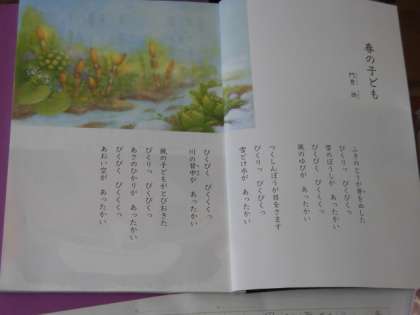 春の子ども
門倉 詇
ふきのとうが芽をだした
ぴくりっ ぴくぴくっ
雪のぼうしが あったかい
ぴくぴく ぴくくくっ
風のゆびが あったかい
つくしんぼうが目をさます
ぴくりっ ぴくぴくっ
雪どけ水が あったかい
ぴくぴく ぴくくくっ
川の背中が あったかい
風の子どもがとびおきた
ぴくりっ ぴくぴくっ
あさのひかりが あったかい
ぴくぴく ぴくくくっ
あおい空が あったかい